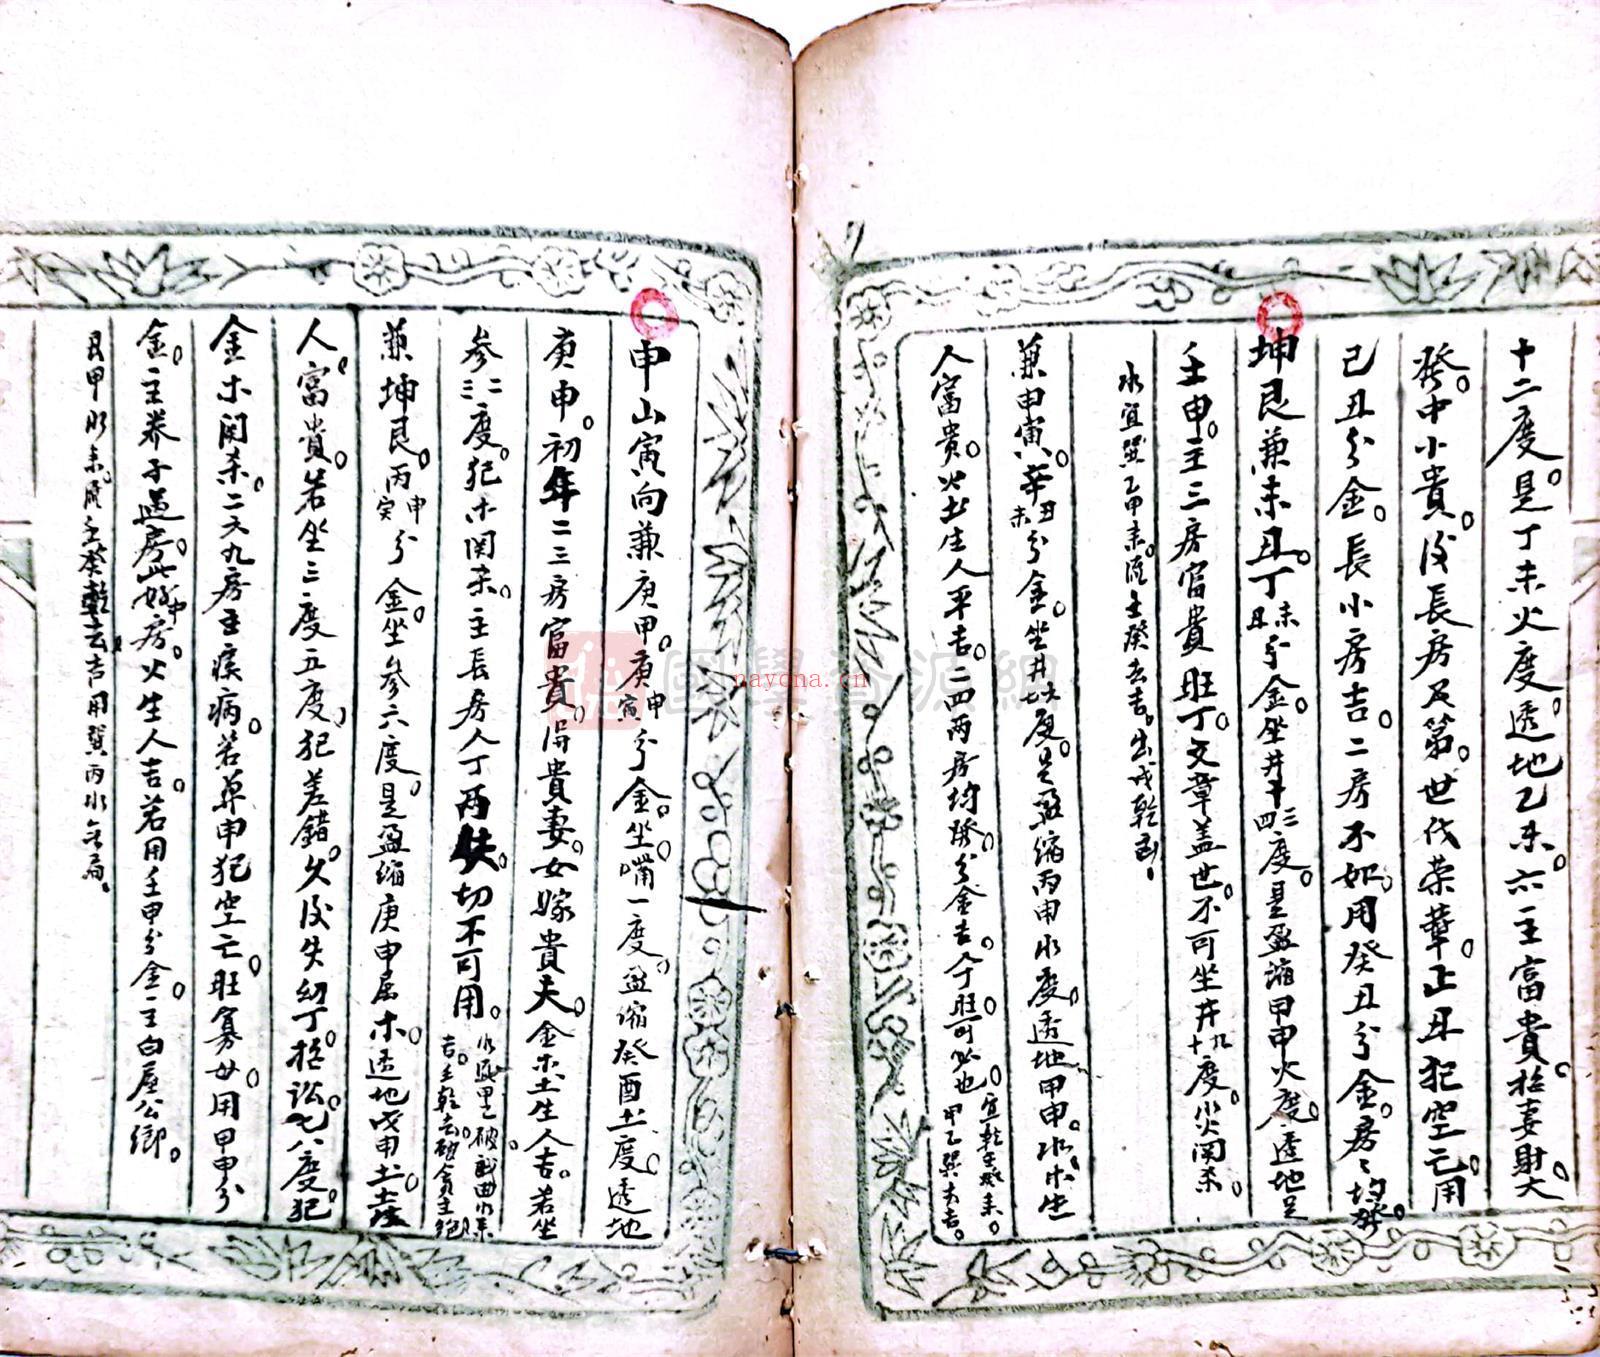 十二度。是丁未火度。透地乙未。六主富貴。招妻財。大
發。中小貴。後長房及第。世代荣華。正丑犯空亡。用
己丑分金。長小房吉。二房不如。用癸丑分金。房〻均發。
坤艮兼未丑。丁未丑分金。坐井三四度。是盈縮甲申火度。透地是
壬申。主三房富貴旺丁。文章盖世。不可坐井九十度。火関杀。
水宜巽乙甲未。 壬癸去吉。出戍乾
兼申寅。辛丑未分金。坐井六七度。是盈縮丙申水度。透地甲申。水木生
人富貴。火土生人平吉。二四两房均發。分金吉。人丁旺可必也。宜乾壬癸未。甲乙巽去吉。
申山寅向兼庚甲。庚申寅分金。坐嘴一度。盈縮癸酉土度。透地
庚申。初年二三房富貴。得貴妻。女嫁貴夫。金木土生人吉。若坐
参二三度。犯木関杀。主長房人丁两失。切不可用。
兼坤艮。丙申寅分金。坐参六度。是盈縮庚申属木。透地戊申土。
人富貴。若坐三度五度。犯差錯。久後失幼丁。招讼。七八度犯
金木関杀。二六九房主疾病。若算申犯空亡。旺寡女。用甲申分
金。主养子過房。此中房。火生人吉。若用壬申分金。主白屋公鄉。
艮甲水未。 壬癸乾去吉。用巽丙水